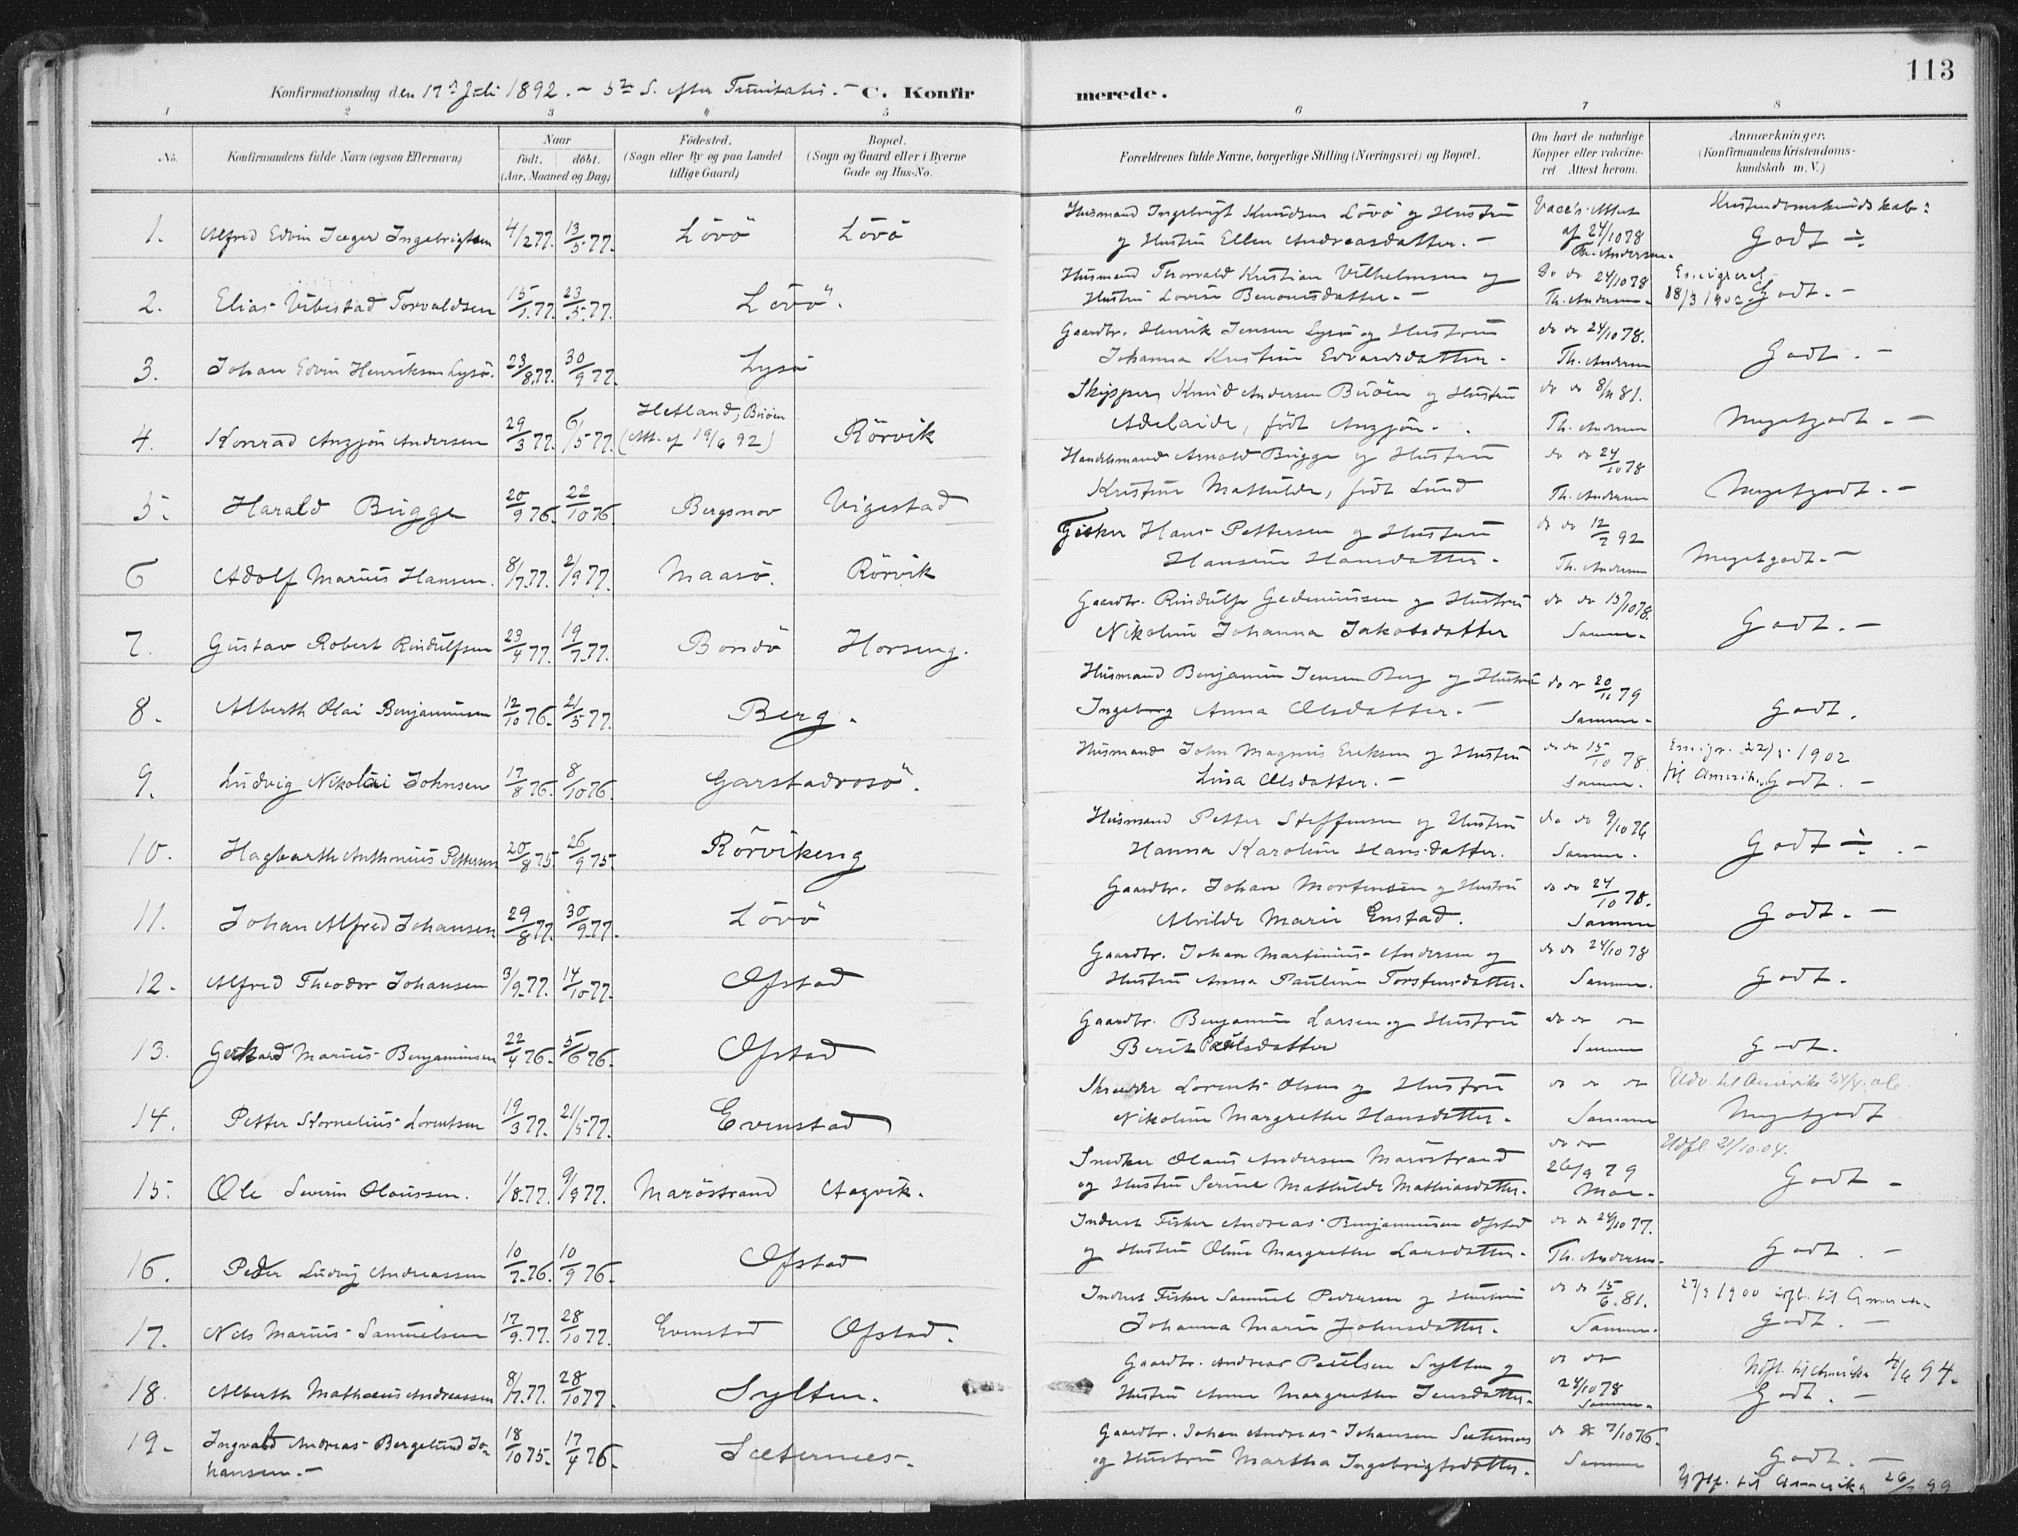 113
Konfirmationsdag den 17de Juli 1892. - 5te S. efter Trinitatis. - C. Konfir merede.
1 2 3 4 5 6 7 8
No. Konfirmandens fulde Navn (ogsaa Efternavn) Naar født. døbt. (Aar, Maaned og Dag) Fødested. (Sogn eller By og paa Landet tillige Gaard) Bopæl. (Sogn og Gaard eller i Byerne Gade og Hus-No.
Forældrenes fulde Navne, borgerlige Stilling (Næringsvei) og Bopæl. Om havt de naturlige Kopper eller vakcineret Attest herom. Anmærkninger. (Konfirmandens Kristendomskundskab m. V.)
Husmand Ingebrigt Knudsen Lövö og Hustru Vacc's Attest Kristendomskundskab:
1. Alfred Edvin Jæger Ingebrigtsen 4/2 77. 13/5 77. Lövö Lövö og Hustru Ellen Andreasdatter. - af 24/10 78 Th. Andersen. Godt ÷
Husmand Thorvald Kristian Vilhelmsen og Do do 24/10 78 Emigreret
2. Elias Vibestad Torvaldsen 15/1 77. 23/5 77. Lövö. Hustru Lovise Benonisdatter. - Th. Andersen. 18/3 1902 Godt. -
Gaardbr. Henrik Jensen Lysö og Hustru do do 24/10 78.
3. Johan Edvin Henriksen Lysö. 23/8 77. 30/9 77. Lysö Johanna Kristine Edvardsdatter. Th. Andersen Godt. -
Skipper Knud Andersen Buöen og Hustru do do 8/11 81.
4. Konrad Anzjön Andersen 29/3 77. 6/5 77. Hetland, Buöen (Att. af 19/6 92) Rörvik Adelaide, födt Anzjön. Th. Andersen Megetgodt. -
Handelsmand Arnold Bugge og Hustru do do 24/10 78
5. Harald Bugge 20/9 76. 22/10 76. Bergsnov Vigestad Kristine Mathilde, födt Lund Th. Andersen Megetgodt. -
Fisker Hans Pettersen og Hustru do do 12/7 92
6 Adolf Marius Hansen. 8/7 77. 2/9 77. Maasö. Rörvik Hansine Hansdatter. Th. Andersen Megetgodt. -
Gaardbr. Rindulf Gedeonsen og Hustru do do 15/10 78.
7. Gustav Robert Rindulfsen 23/4 77. 19/7 77. Bondö Horseng. Nikoline Johanna Jakobsdatter Samme. Godt. -
Husmand Benjamin Jensen Berg og Hustru do do 20/11 79
8. Alberth Olai Benjaminsen 12/10 76. 21/5 77. Berg. Ingeborg Anna Olsdatter. - Samme. Godt.
Husmand John Magnus Eriksen og Hustru do do 15/10 78. Emigr. 22/5 1902
9. Ludvig Nikolai Johnsen 17/8 76. 8/10 76. Garstadvosö. Lina Olsdatter. - Samme. til Amerika Godt. -
Husmand Petter Steffensen og Hustru do do 9/10 76
10. Hagbarth Anthonius Pettersen 20/8 75. 26/9 75. Rörvikeng Hanna Karoline Hansdatter. Samme. Godt ÷ . -
Gaardbr. Johan Mortensen og Hustru do do 24/10 78.
11. Johan Alfred Johansen 29/8 77. 30/9 77. Lövö Alvilde Marie Enstad. Samme Godt. -
Gaardbr. Johan Martinius Andersen og do do 24/10 78
12. Alfred Theodor Johansen 3/9 77. 14/10 77. Ofstad Hustru Anna Pauline Torstensdatter. Samme. Godt.
Gaardbr. Benjamin Larsen og Hustru do do do
13. Gerhard Marius Benjaminsen 22/4 76. 5/6 76. Ofstad Berit Paulsdatter Samme Godt.
Skrædder Lorents Olsen og Hustru do do do Udv. til Amerika 24/4.06
14. Petter Kornelius Lorentsen 19/3 77. 21/5 77. Evenstad Nikoline Margrethe Hansdatter. Samme Megetgodt
Snedker Olaus Andersen Maröstrand do do 26/9 79 Udfl 21/10.04.
15. Ole Severin Olaussen. 1/8 77. 9/9 77. Maröstrand Aagvik. og Hustru Serine Mathilde Mathiasdatter. Moe. Godt -
Inderst Fisker Andreas Benjaminsen Ofstad do do 24/10 77.
16. Peder Ludvig Andreassen 10/7 76. 10/9 76. Ofstad og Hustru Oline Margrethe Larsdatter. Th. Andersen. Godt. -
Inderst Fisker Samuel Pedersen og Hustru do do 15/6 81. 27/3 1900 udfl. til Amerika.
17. Nils Marius Samuelsen 17/9 77. 28/10 77. Evenstad Ofstad. Johanna Marie Johnsdatter. Samme. Godt. -
Gaardbr. Andreas Paulsen Sylten og do do Udfl. til Amerika 4/6 94.
18. Alberth Mathæus Andreassen 8/7 77. 28/10 77. Sylten. Hustru Anne Margrethe Jensdatter. 24/10 78 Samme. Godt. -
Gaardbr. Johan Andreas Johansen Sæternes do do 7/10 76.
19. Ingvald Andreas Bergelund Johansen. - 18/10 75. 17/4 76. Sæternes. og Hustru Martha Ingebrigtsdatter. Samme Godt. -
Udfl. til Amerika 26/7 99